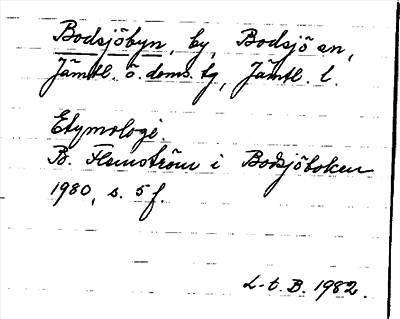 Bodsjöbyn, by, Bodsjö sn,
Jämtl. ö. doms. tg, Jämtl. l.
Etymologi.
B. Flemström i Bodsjöboken
1980, s. 5 f.
L-t. B. 1982.